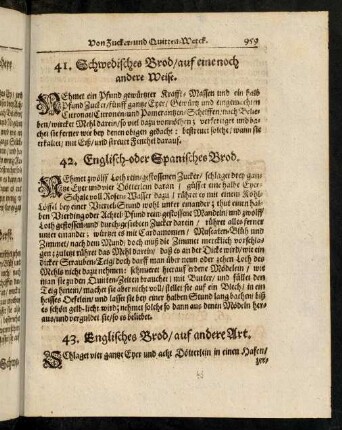 Von Zucker- und Quitten-Werck. 959
41. Schwedisches Brod/ auf eine noch
andere Weise.
NEhmet ein Pfund gewürtzter Krafft-Massen und ein halb
Pfund Zucker/ fünff gantze Eyer/ Gewürtz und eingemachten
Citronat/ Citronen/ und Pomerantzen-Schelffen/ nach Belie-
ben/ würcket Mehl daran/ so viel dazu vonnöthen; verfertiget und ba-
chet sie ferner wie bey denen obigen gedacht: bestreuet solche/ wann sie
erkaltet/ mit Eyß/ und streuet Fenchel darauf.
42. Englisch- oder Spanisches Brod.
NEhmet zwölff Loth rein gestossenen Zucker/ schlaget drey gan-
tze Eyer und vier Dötterlein daran/ giesset eine halbe Eyer-
Schale voll Rosen-Wasser dazu/ rühret es mit einem Kohl-
Löffel bey einer Viertel-Stund wohl unter einander; thut einen hal-
ben Vierding oder Achtel-Pfund rein gestossene Mandeln/ und zwölff
Loth gestossen und durchgesiebten Zucker darein/ rühret alles ferner
unter einander/ würtzet es mit Cardamomen/ Muscaten-Blüh und
Zimmet/ nach dem Mund; doch muß die Zimmet mercklich vorschla-
gen: zuletzt rühret das Mehl darein/ daß es an der Dicke wird/ wie ein
dicker Strauben-Teig/ doch darff man über neun oder zehen Loth des
Mehls nicht dazu nehmen: schmieret hierauf erdene Mödelein/ wie
man sie zu den Quitten-Zeiten brauchet/ mit Butter/ und füllet den
Teig hinein/ machet sie aber nicht voll/ stellet sie auf ein Blech/ in ein
heisses Oefelein/ und lasset sie bey einer halben Stund lang bachen/ biß
es schön gelb-licht wird; nehmet solche so dann aus denen Mödeln her-
aus/ und vergüldet sie/ so es beliebet.
43. Englisches Brod/ auf andere Art.
SChlaget vier gantze Eyer und acht Dötterlein in einen Hafen/